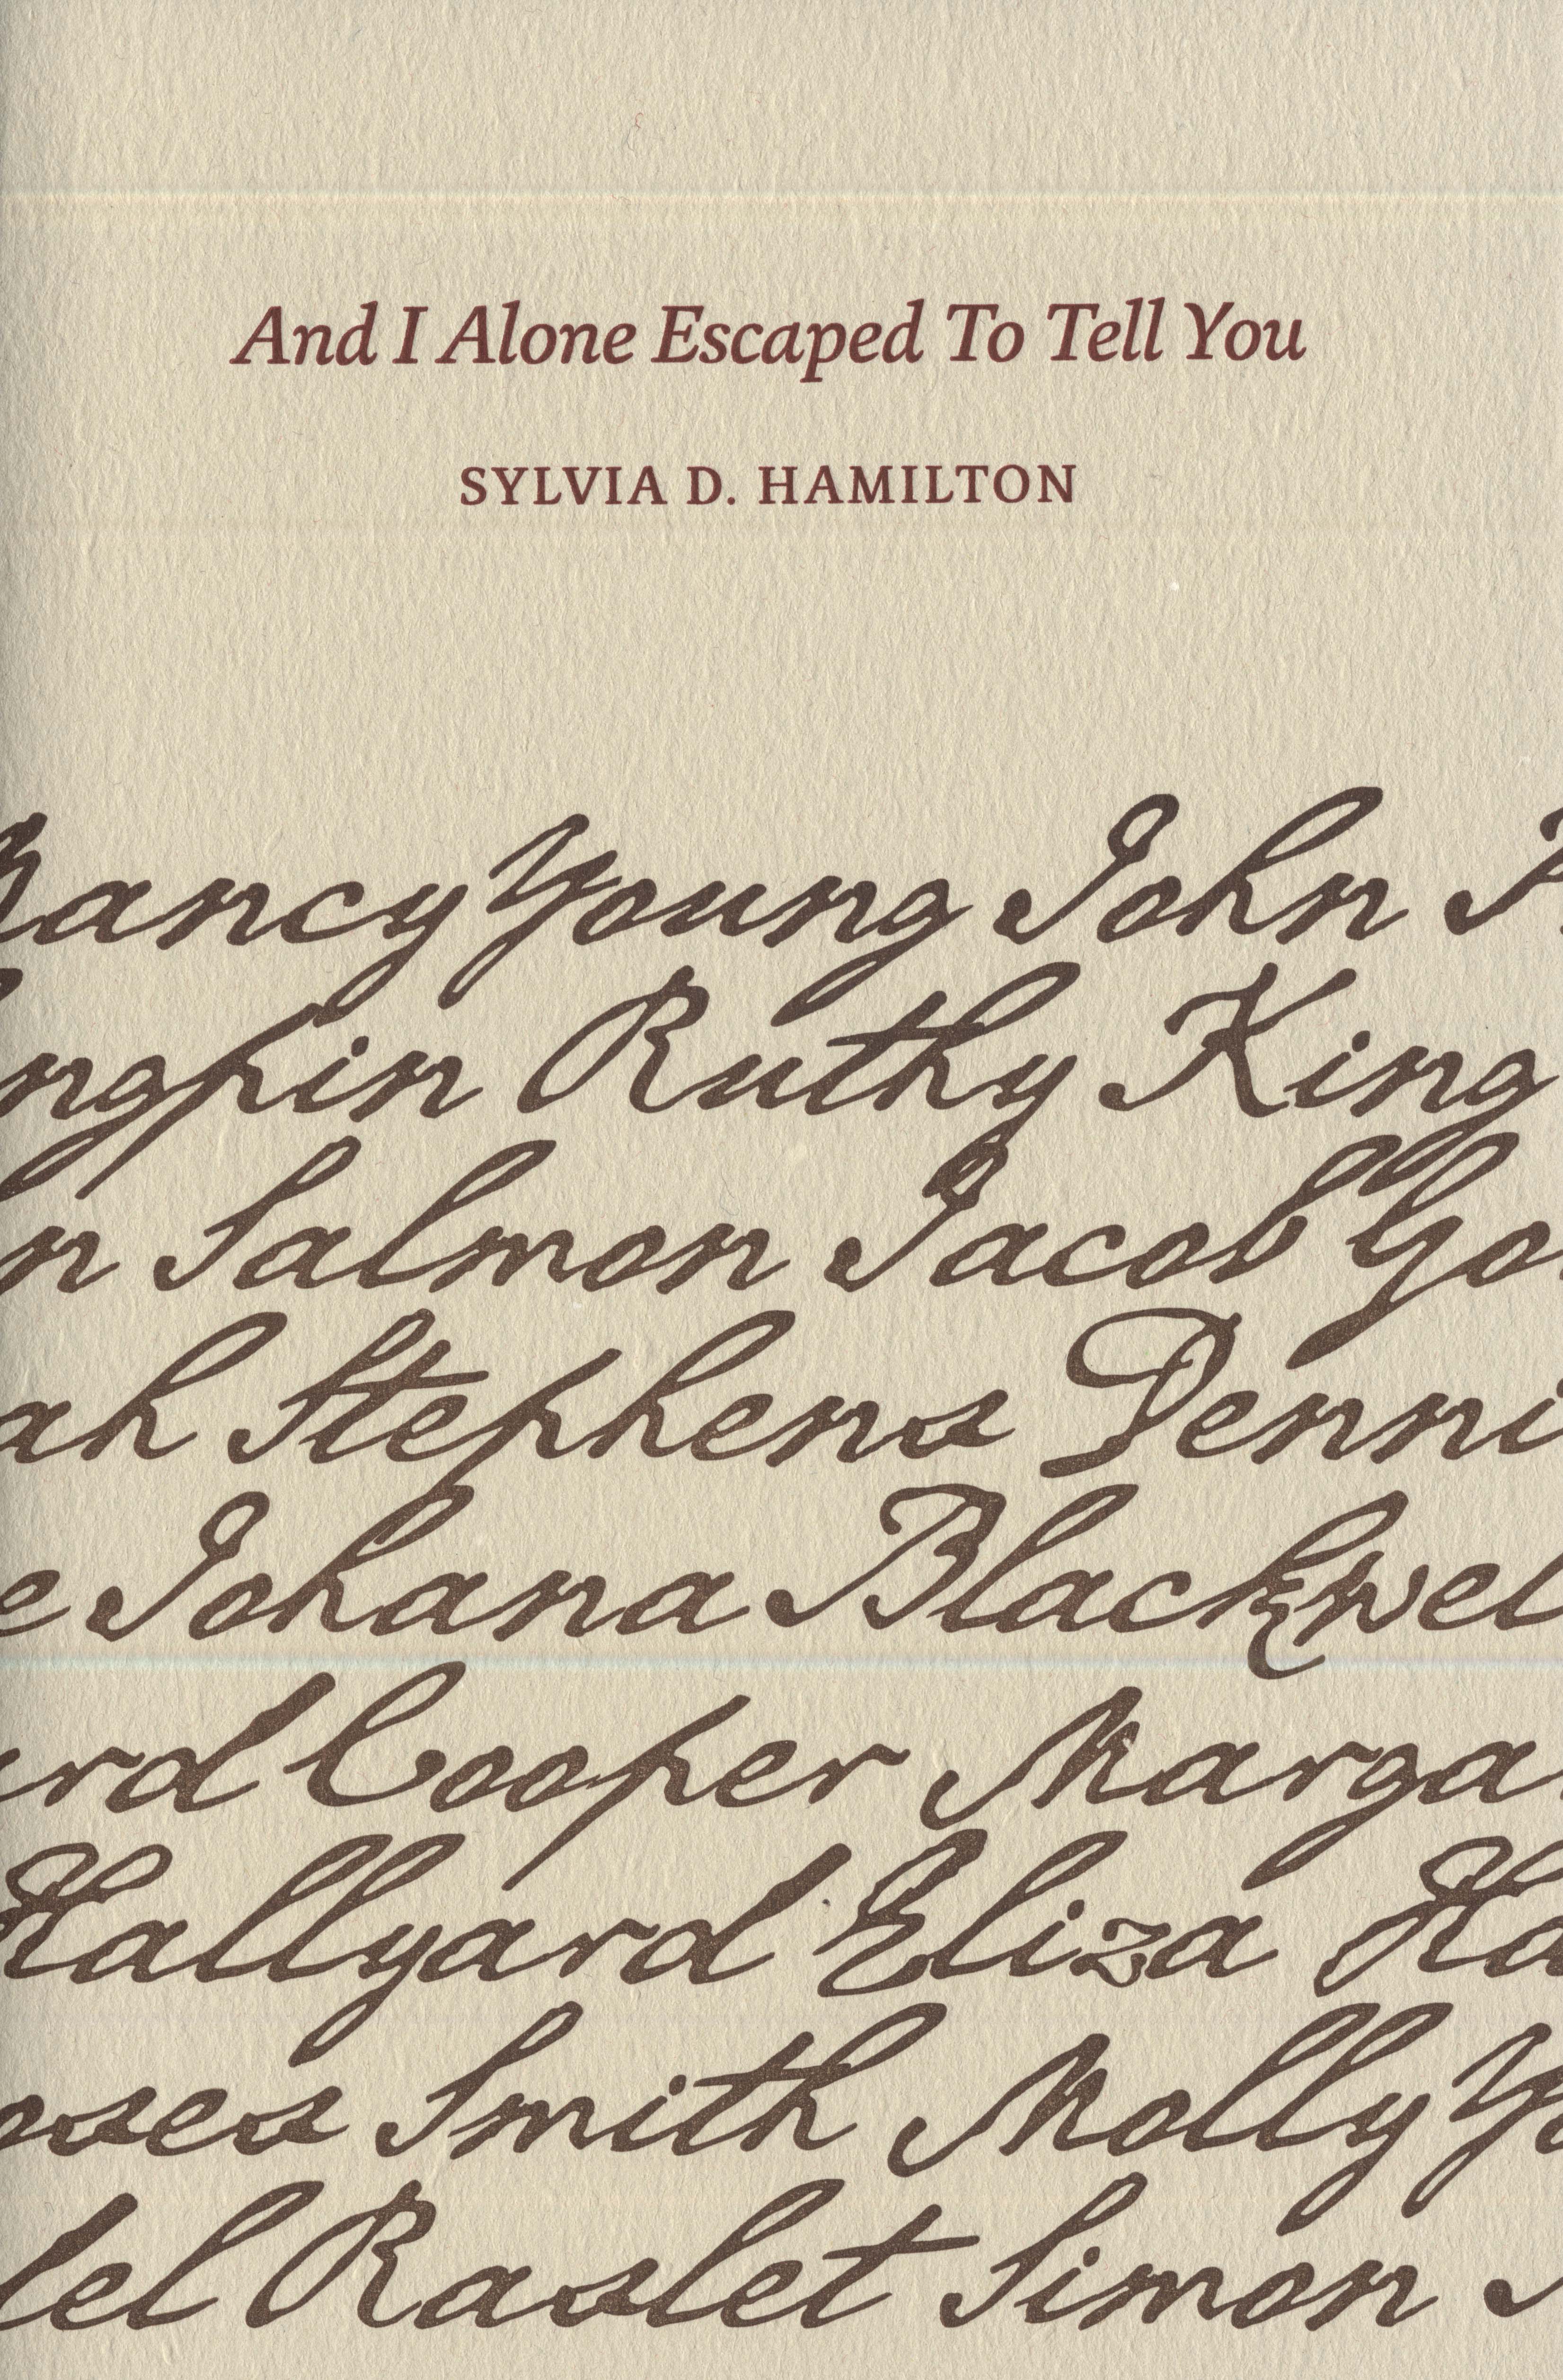 And I Alone Escaped To Tell You
SYLVIA D. HAMILTON
Nancy Young John
ngpin Ruthy King
n Salmon Jacob Go
ah Stephens Denni
e Johana Blackwel
rd Cooper Margar
Hallyard Eliza Ha
oses Smith Molly Yo
del Raslet Simon